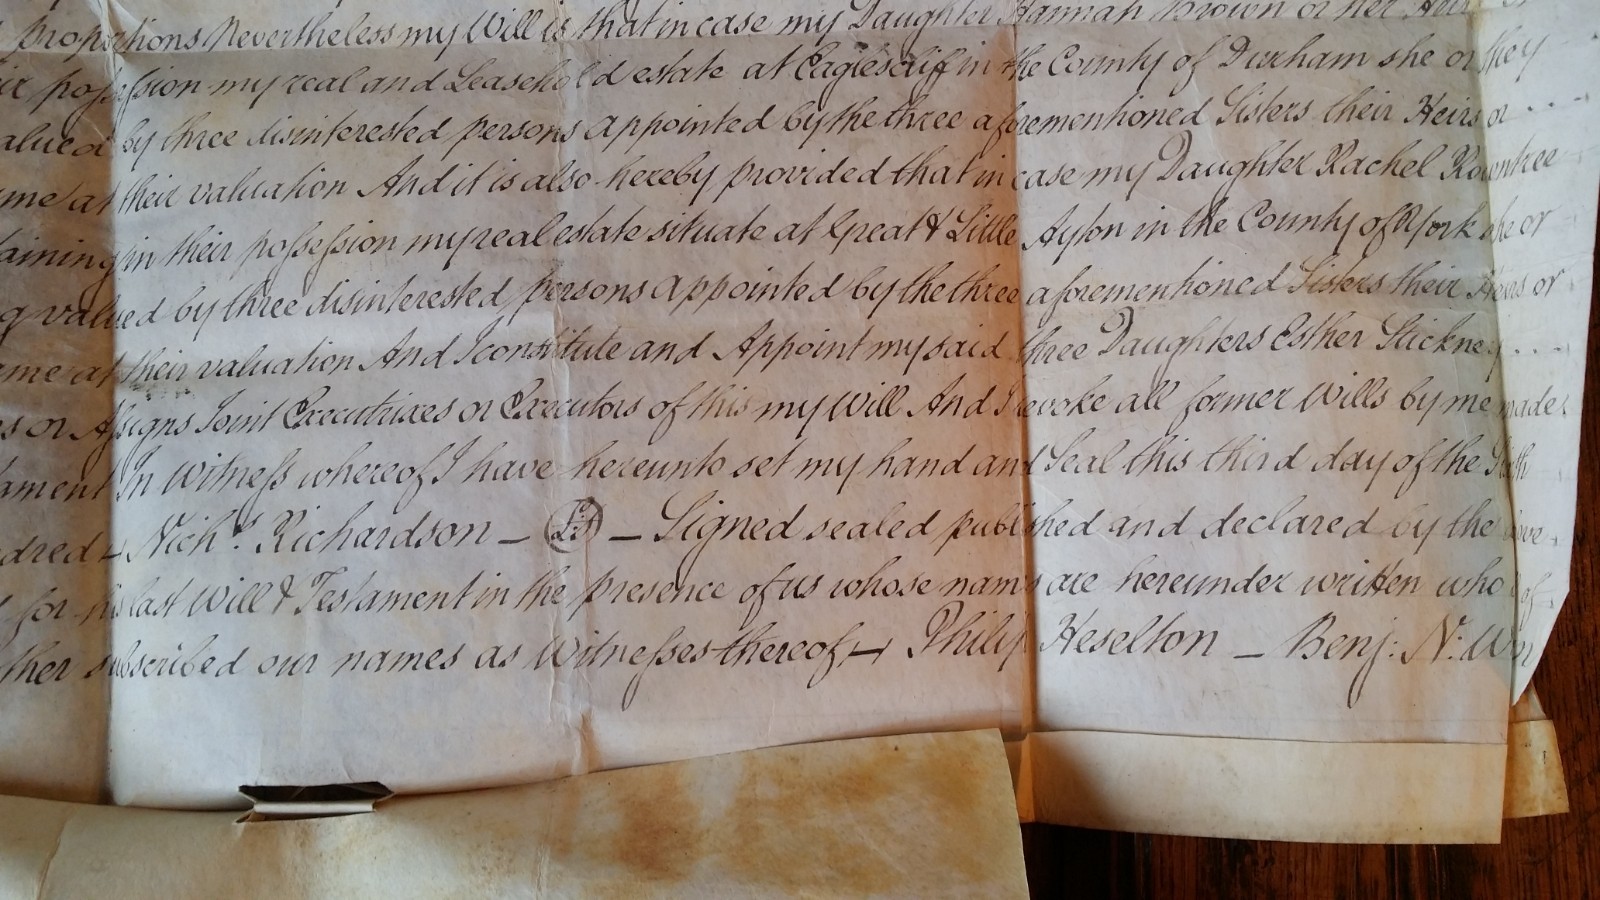 proportions Nevertheless my Will is that in case my Daughter Hannah Brown or her Heirs
possession my real and Leasehold estate at Eaglescliff in the County of Durham she or they
by three disinterested persons appointed by the three aforementioned Sisters their Heirs or
at their valuation And it is also hereby provided that in case my Daughter Rachel Rowntree
in their possession my real estate situate at Great & Little Ayton in the County of York she or
valued by three disinterested persons appointed by the three aforementioned Sisters their Heirs or
at their valuation And I constitute and Appoint my said three Daughters Esther Stickney
or Assigns Joint Executrixes or Executors of this my Will And I revoke all former Wills by me made
In Witness whereof I have hereunto set my hand and Seal this third day of the Sixth
dred – Nichs. Richardson – LS – Signed sealed published and declared by the above
for his last Will & Testament in the presence of us whose names are hereunder written who
subscribed our names as Witnesses thereof – Philip Heselton – Benj: N: Wm